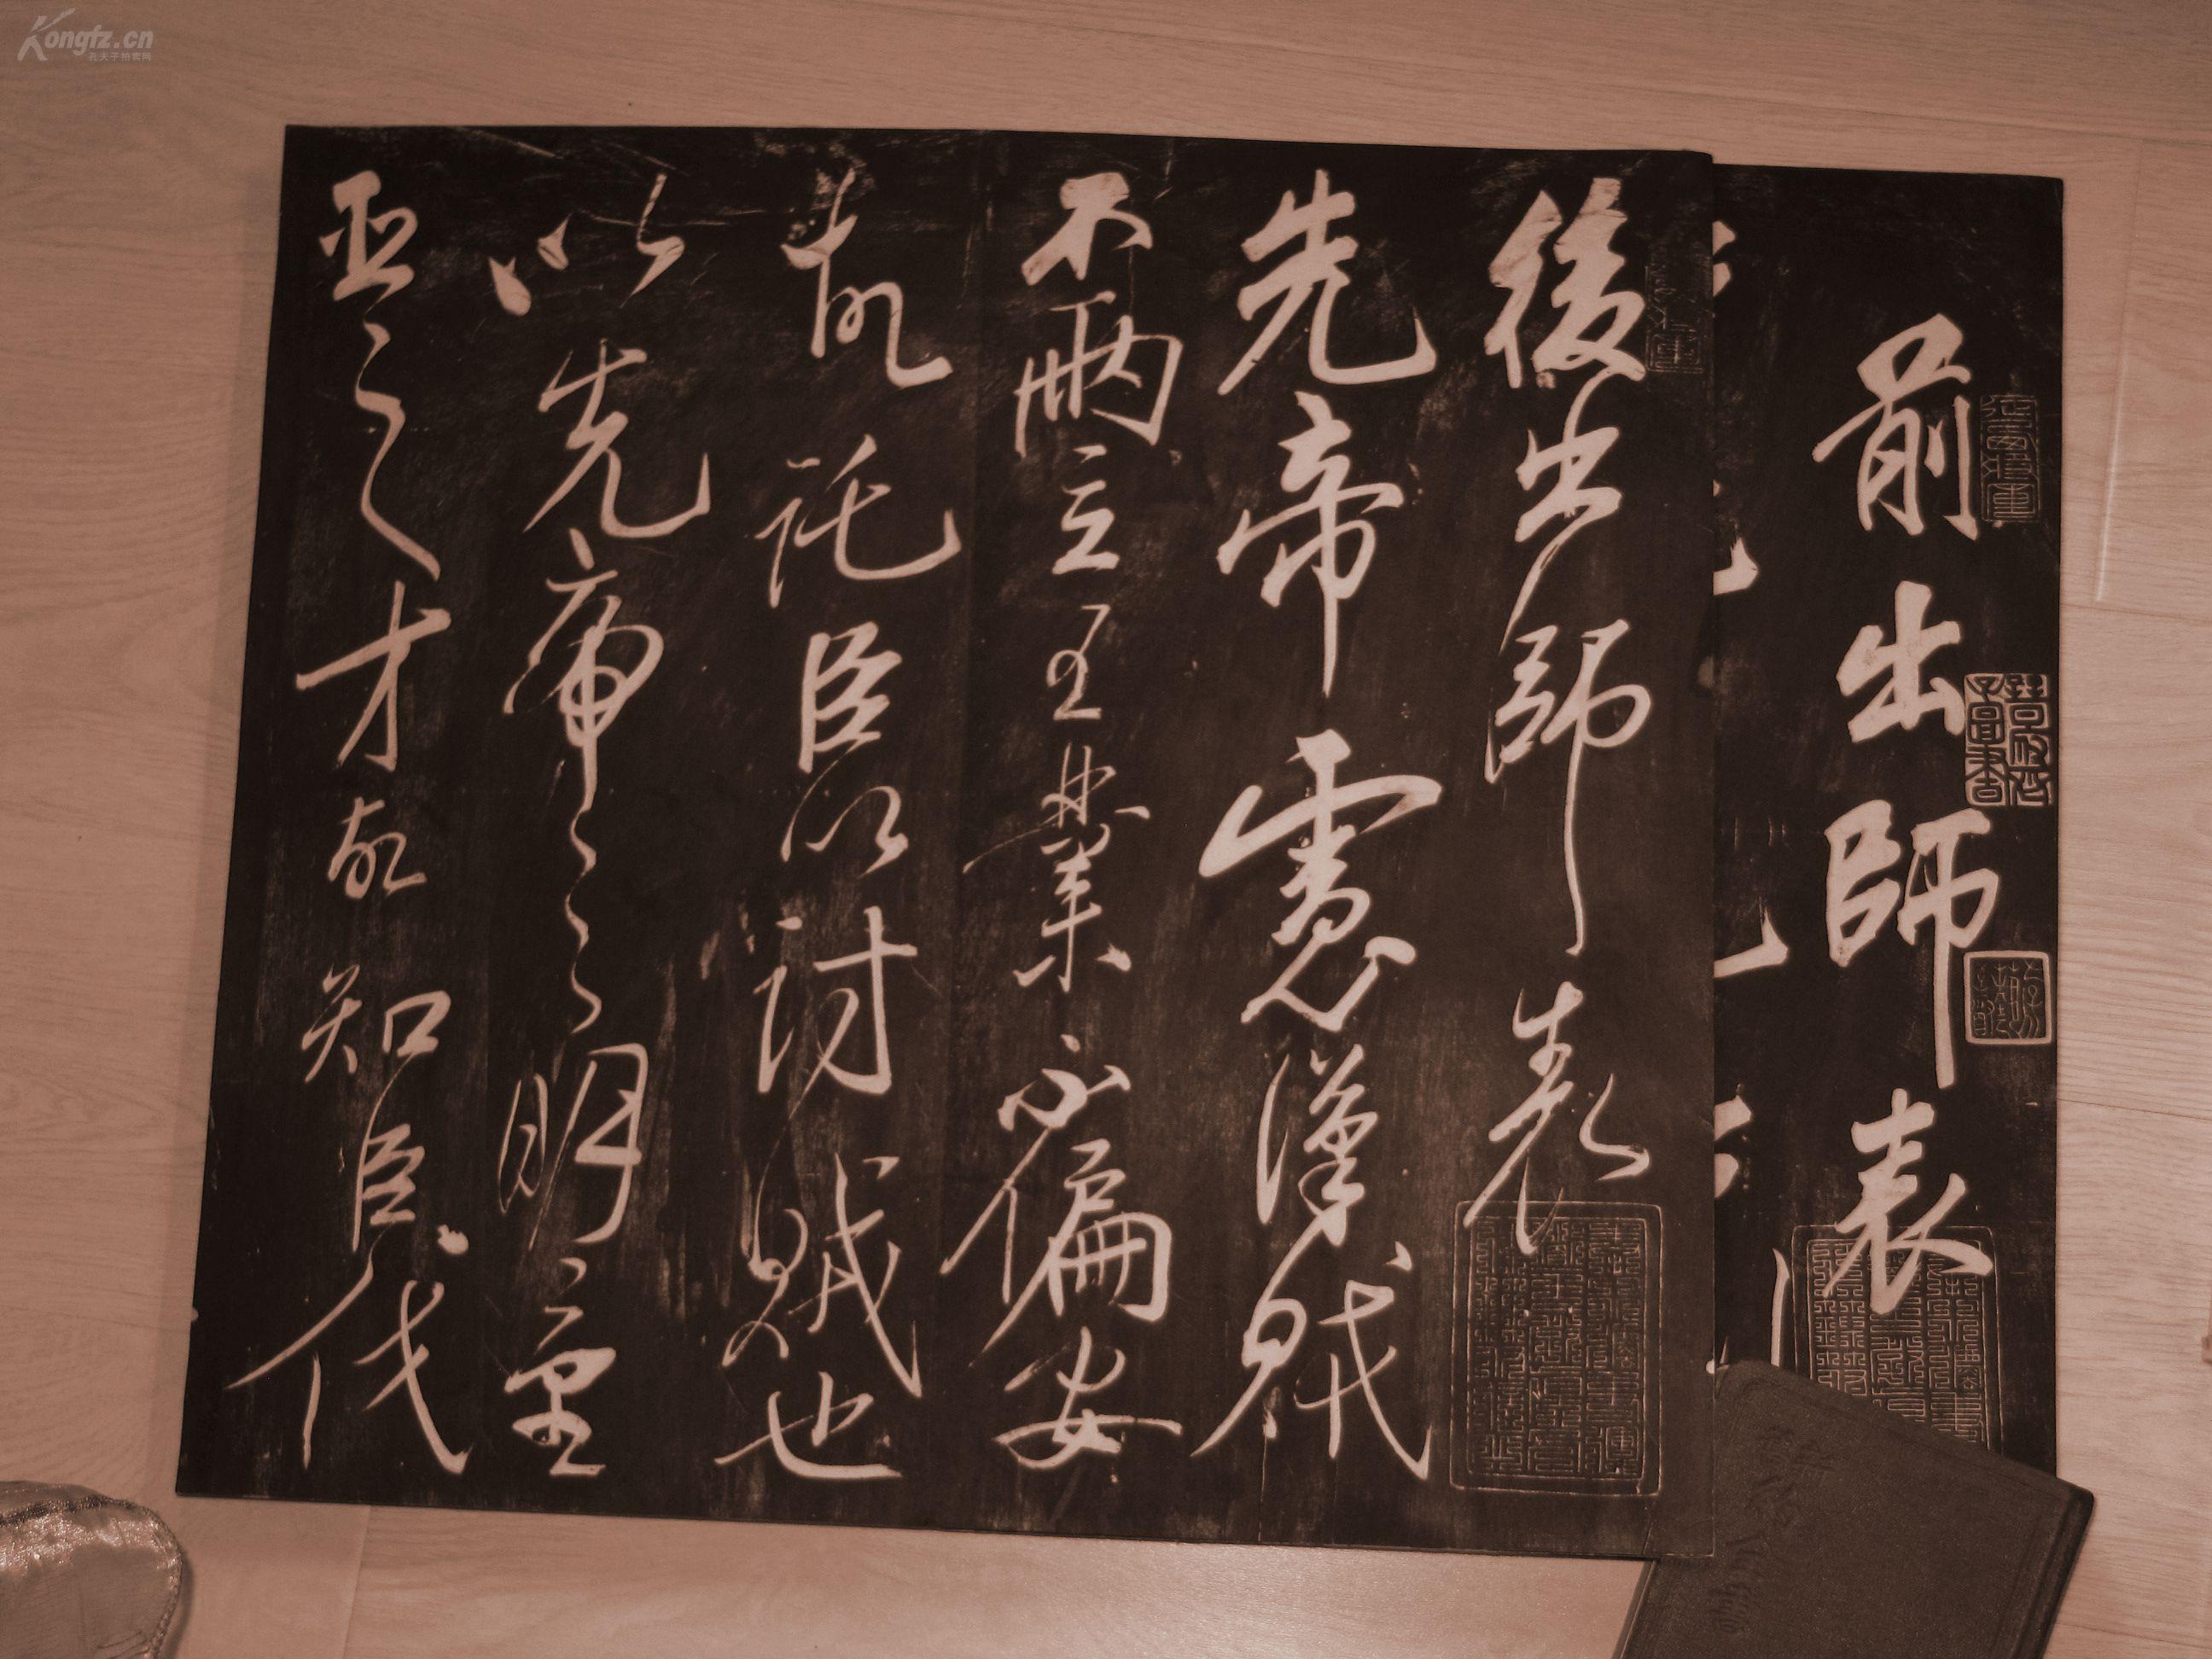 前出師表
後出師表
先帝慮漢賊
不兩立王業不偏安
故託臣以討賊也
以先帝之明量
臣之才故知臣伐
Kongfz.cn